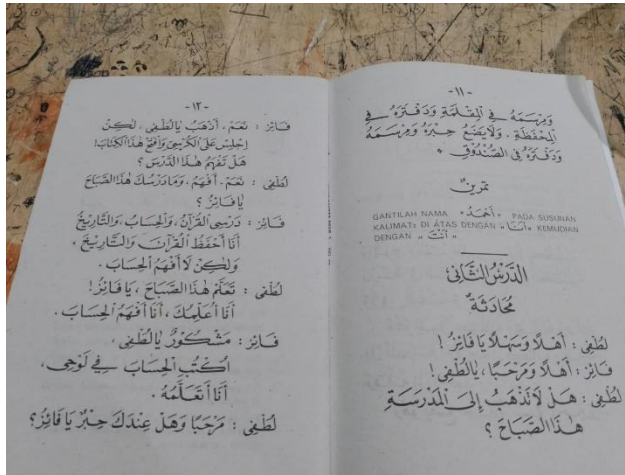 -١١-
وَمِرْسَمَهُ فِي الْمِقْلَمَةِ وَدَفْتَرَهُ فِي
الْمِحْفَظَةِ . وَلَا يَضَعُ حِبْرَهُ وَمِرْسَمَهُ
وَدَفْتَرَهُ فِي الصُّنْدُوْقِ .
تَمْرِيْنٌ
GANTILAH NAMA "أَحْمَدُ" PADA SUSUNAN
KALIMAT2 DI ATAS DENGAN "أَنَا" KEMUDIAN
DENGAN "أَنْتَ"
الدَّرْسُ الثَّانِى
مُحَادَثَةٌ
لُطْفِى : أَهْلًا وَسَهْلًا يَا فَائِزُ !
فَائِز : أَهْلًا وَمَرْحَبًا ، يَا لُطْفِى !
لُطْفِى : هَلْ لَا تَذْهَبُ إِلَى الْمَدْرَسَةِ
هٰذَا الصَّبَاحَ ؟
-١٢-
فَائِز : نَعَمْ ، أَذْهَبُ يَا لُطْفِى ، لٰكِنْ
اِجْلِسْ عَلَى الْكُرْسِيِّ وَافْتَحْ هٰذَا الْكِتَابَ!
هَلْ تَفْهَمُ هٰذَا الدَّرْسَ ؟
لُطْفِى : نَعَمْ . أَفْهَمُ ، وَمَا دَرْسُكَ هٰذَا الصَّبَاحَ
يَا فَائِزُ ؟
فَائِز : دَرْسِى الْقُرْآنُ ، وَالْحِسَابُ ، وَالتَّارِيْخُ
أَنَا أَحْفَظُ الْقُرْآنَ وَالتَّارِيْخَ .
وَلٰكِنْ لَا أَفْهَمُ الْحِسَابَ .
لُطْفِى : تَعَلَّمْ هٰذَا الصَّبَاحَ ، يَا فَائِزُ!
أَنَا أُعَلِّمُكَ ، أَنَا أَفْهَمُ الْحِسَابَ .
فَائِز : مَشْكُوْرٌ يَا لُطْفِى ،
اُكْتُبِ الْحِسَابَ فِي لَوْحِى ،
أَنَا أَتَعَلَّمُهُ .
لُطْفِى : مَرْحَبًا وَهَلْ عِنْدَكَ حِبْرٌ يَا فَائِزُ؟